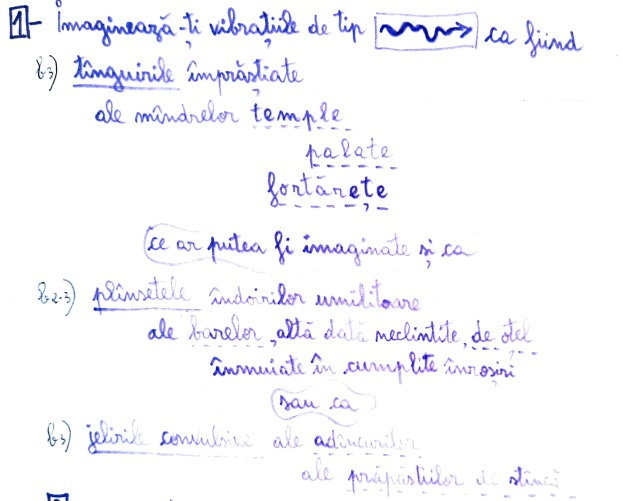 1 - Imaginează-ți vibrațiile de tip ca fiind
b.3) tînguirile împrăștiate
ale mîndrelor temple
palate
fortărețe
ce ar putea fi imaginate și ca
b.2-3) plînsetele îndoirilor umilitoare
ale barelor, altă dată neclintite, de oțel
înmuiate în cumplite înroșiri
sau ca
b.3) jelirile convulsive ale adîncurilor
ale prăpăstiilor de stîncă